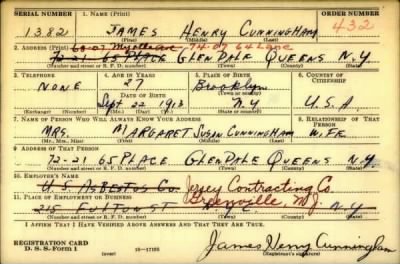 SERIAL NUMBER 1. NAME (Print) ORDER NUMBER
1382 JAMES HENRY CUNNINGHAM 432
(First) (Middle) (Last)
2. ADDRESS (Print) 60-07 Myrtle Ave 74-07 64 Lane
72-21 65 PLACE GLENDALE QUEENS N.Y.
(Number and street or R. F. D. number) (Town) (County) (State)
3. TELEPHONE 4. AGE IN YEARS 5. PLACE OF BIRTH 6. COUNTRY OF CITIZENSHIP
NONE 27 Brooklyn
DATE OF BIRTH (Town or county)
Sept 22 1913 N.Y U.S.A.
(Exchange) (Number) (Mo.) (Day) (Yr.) (State or country)
7. NAME OF PERSON WHO WILL ALWAYS KNOW YOUR ADDRESS 8. RELATIONSHIP OF THAT PERSON
MRS. MARGARET SUSAN CUNNINGHAM WIFE
(Mr., Mrs., Miss) (First) (Middle) (Last)
9. ADDRESS OF THAT PERSON
72-21 65 PLACE GLENDALE QUEENS N.Y.
(Number and street or R. F. D. number) (Town) (County) (State)
10. EMPLOYER'S NAME
U.S. ASBESTOS CO. Jersey Contracting Co.
11. PLACE OF EMPLOYMENT OR BUSINESS Greenville, N.J
215 FULTON ST N.Y.C. N.Y.
(Number and street or R. F. D. number) (Town) (County) (State)
I AFFIRM THAT I HAVE VERIFIED ABOVE ANSWERS AND THAT THEY ARE TRUE.
REGISTRATION CARD
D. S. S. Form 1 (over) 16-17105 James Henry Cunningham